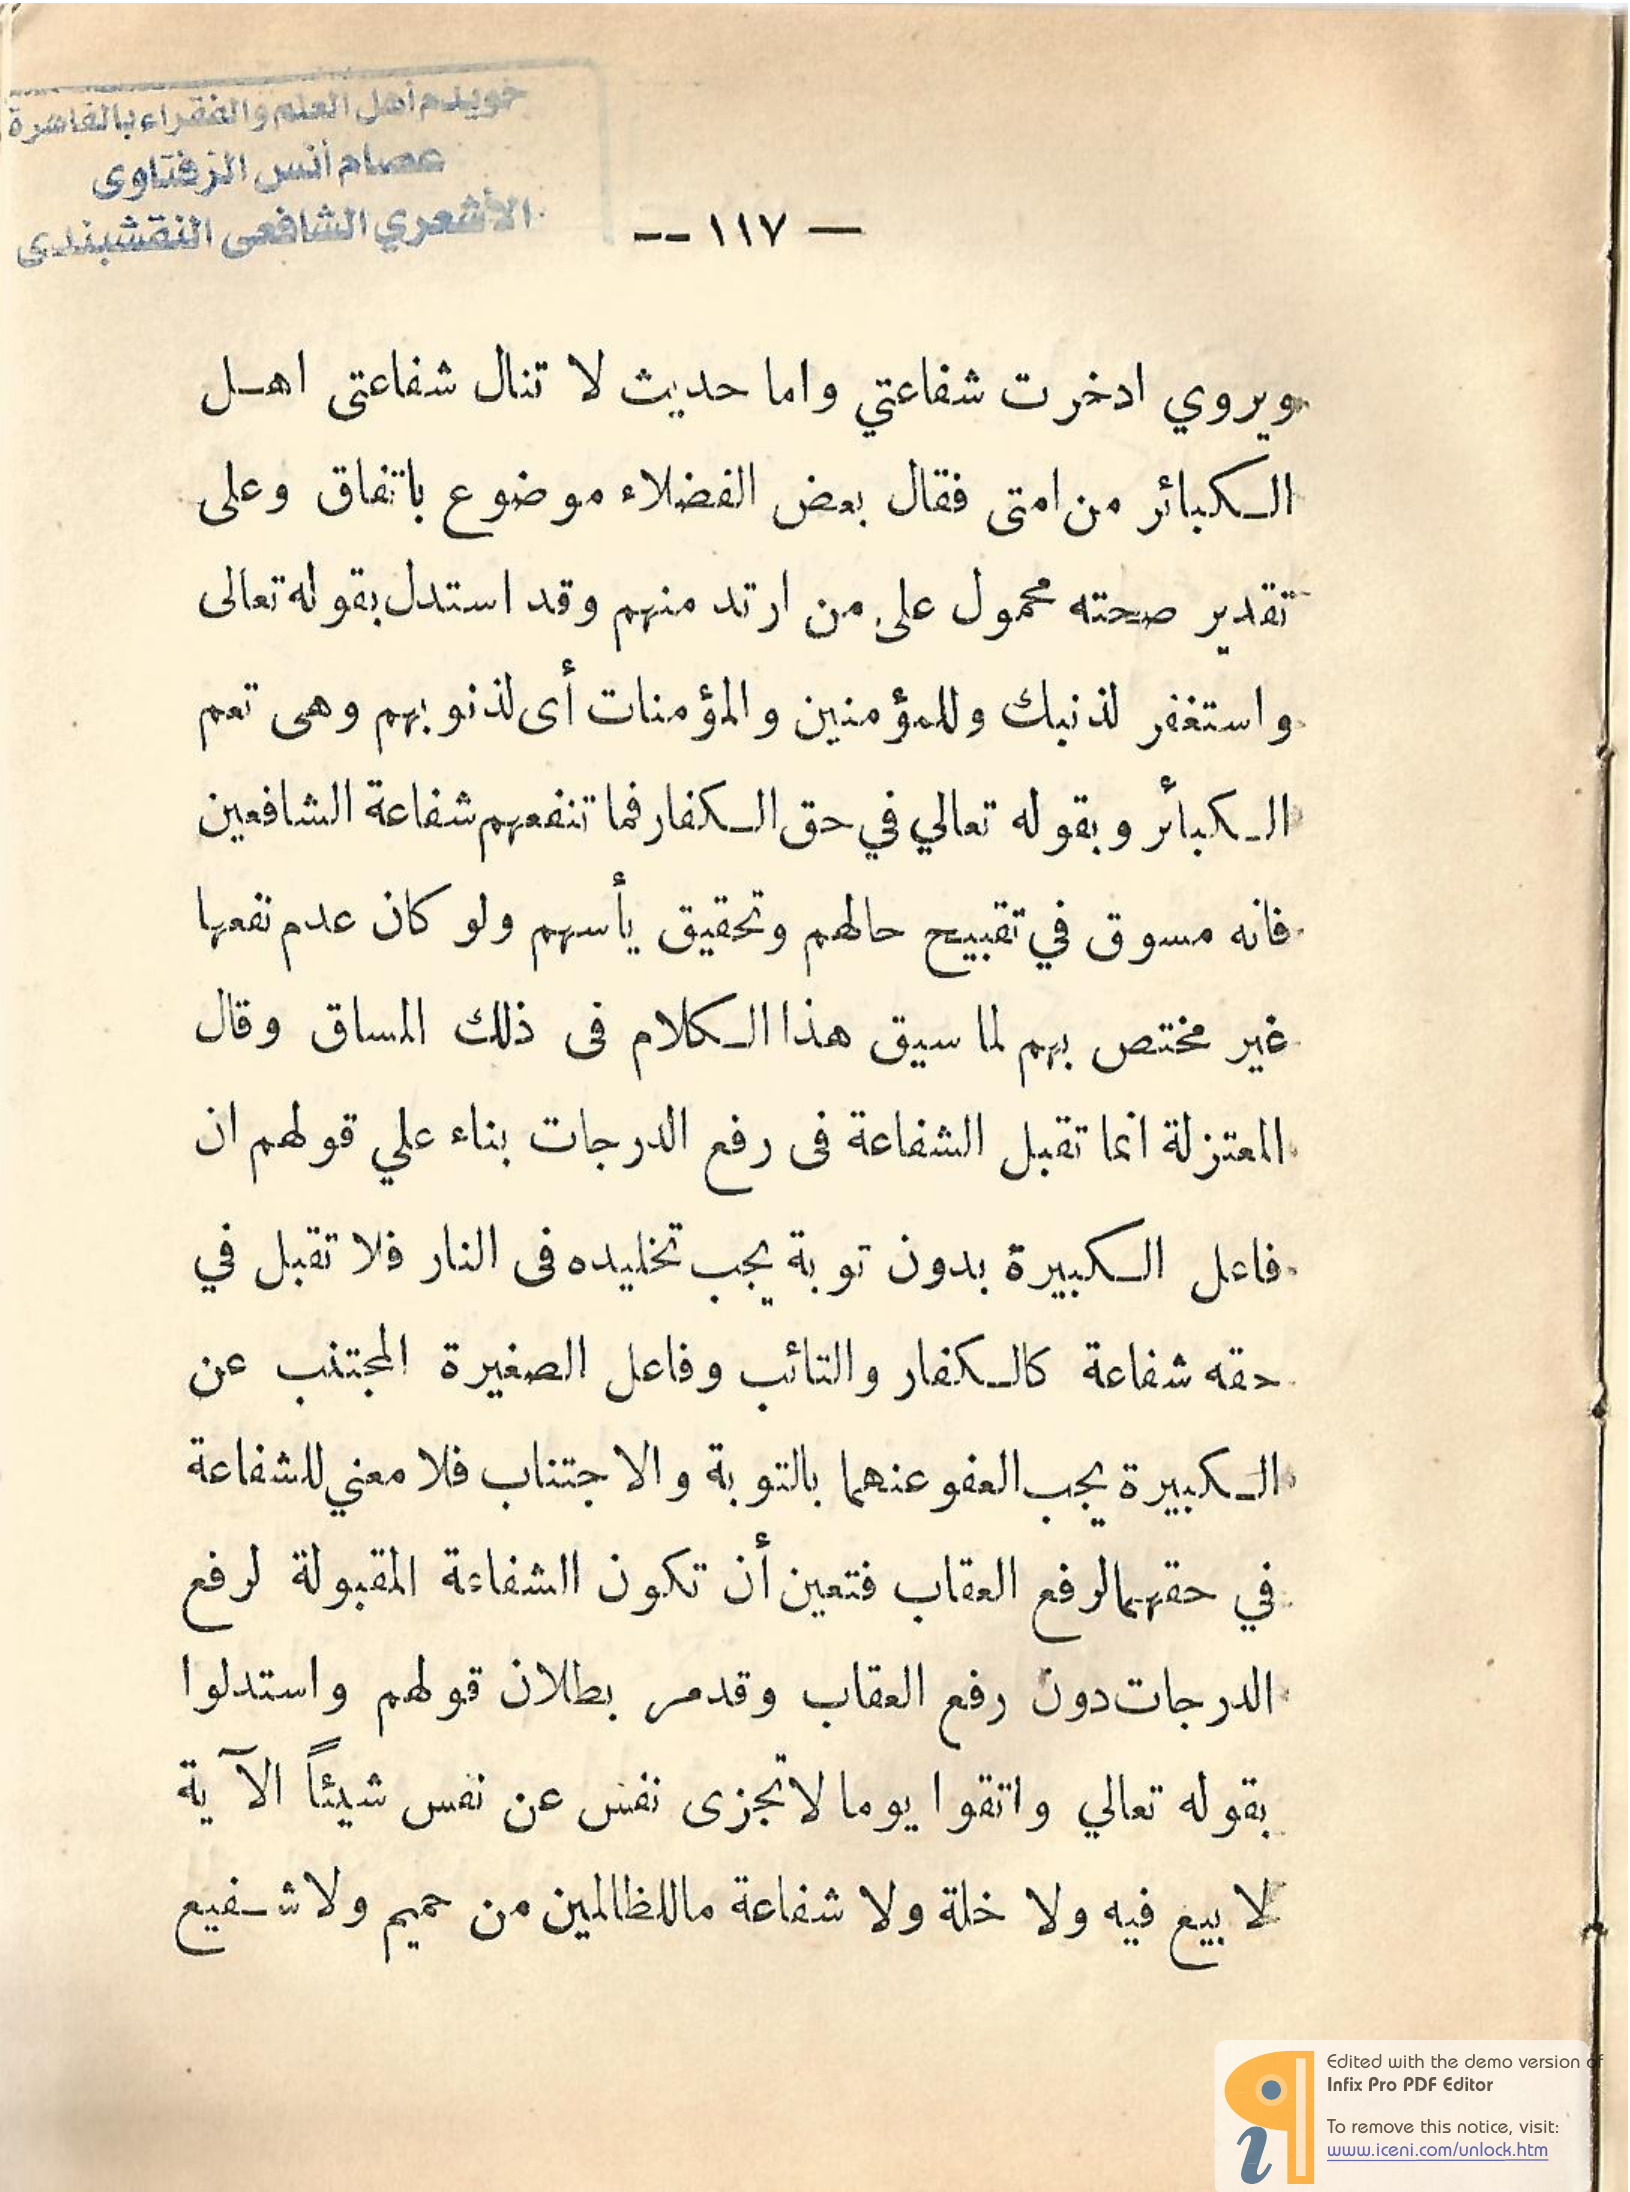 خويدم أهل العلم والفقراء بالقاهرة
عصام أنس الزفتاوى
الأشعري الشافعى النقشبندى
— ١١٧ --
ويروي ادخرت شفاعتي واما حديث لا تنال شفاعتى اهل
الكبائر من امتى فقال بعض الفضلاء موضوع باتفاق وعلى
تقدير صحته محمول على من ارتد منهم وقد استدل بقوله تعالى
واستغفر لذنبك وللمؤمنين والمؤمنات أى لذنوبهم وهى تعم
الكبأئر وبقوله تعالي في حق الكفار فما تنفعهم شفاعة الشافعين
فانه مسوق في تقبيح حالهم وتحقيق يأسهم ولو كان عدم نفعها
غير مختص بهم لما سيق هذا الكلام فى ذلك المساق وقال
المعتزلة انما تقبل الشفاعة فى رفع الدرجات بناء علي قولهم ان
فاعل الكبيرة بدون توبة يجب تخليده فى النار فلا تقبل في
حقه شفاعة كالكفار والتائب وفاعل الصغيرة المجتنب عن
الكبيرة يجب العفو عنهما بالتوبة والاجتناب فلا معني للشفاعة
في حقهما لرفع العقاب فتعين أن تكون الشفاعة المقبولة لرفع
الدرجات دون رفع العقاب وقد مر بطلان قولهم واستدلوا
بقوله تعالي واتقوا يوما لا تجزى نفس عن نفس شيئاً الآية
لا بيع فيه ولا خلة ولا شفاعة ما للظالمين من حميم ولا شفيع
Edited with the demo version of
Infix Pro PDF Editor
To remove this notice, visit:
www.iceni.com/unlock.htm